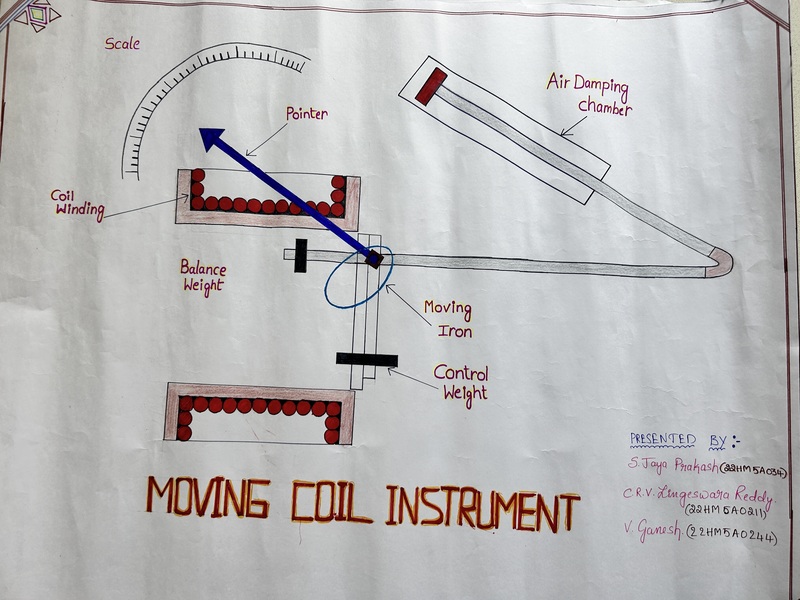 Scale
Air Damping
chamber
Pointer
Coil
Winding
Balance
Weight
Moving
Iron
Control
Weight
PRESENTED BY :-
S. Jaya Prakash (22HM5A0234)
C.R.V. Lingeswara Reddy
(22HM5A0211)
V. Ganesh. (22HM5A0244)
MOVING COIL INSTRUMENT